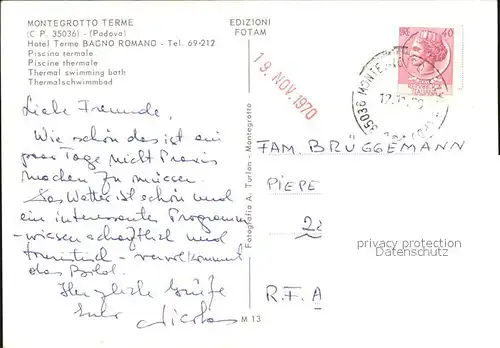 MONTEGROTTO TERME
(C P. 35036) - (Padova)
Hotel Terme BAGNO ROMANO - Tel. 69-212
Piscina termale
Piscine thermale
Thermal swimming bath
Thermalschwimmbad
EDIZIONI
FOTAM
19. NOV. 1970
LIRE 40
35036 MONTEGROTTO
Liebe Freunde,
Wie schön das ist ein
paar Tage nicht Praxis
machen zu müssen.
Das Wetter ist schön und
ein interessantes Programm
- wissenschaftlich und
touristisch - vervollkommnet
das Bild.
Herzliche Grüße
Euer Nicolas
Fotografia A. Turlon - Montegrotto
M 13
FAM. BRÜGGEMANN
PIEPE
22
R.F.A
privacy protection
Datenschutz